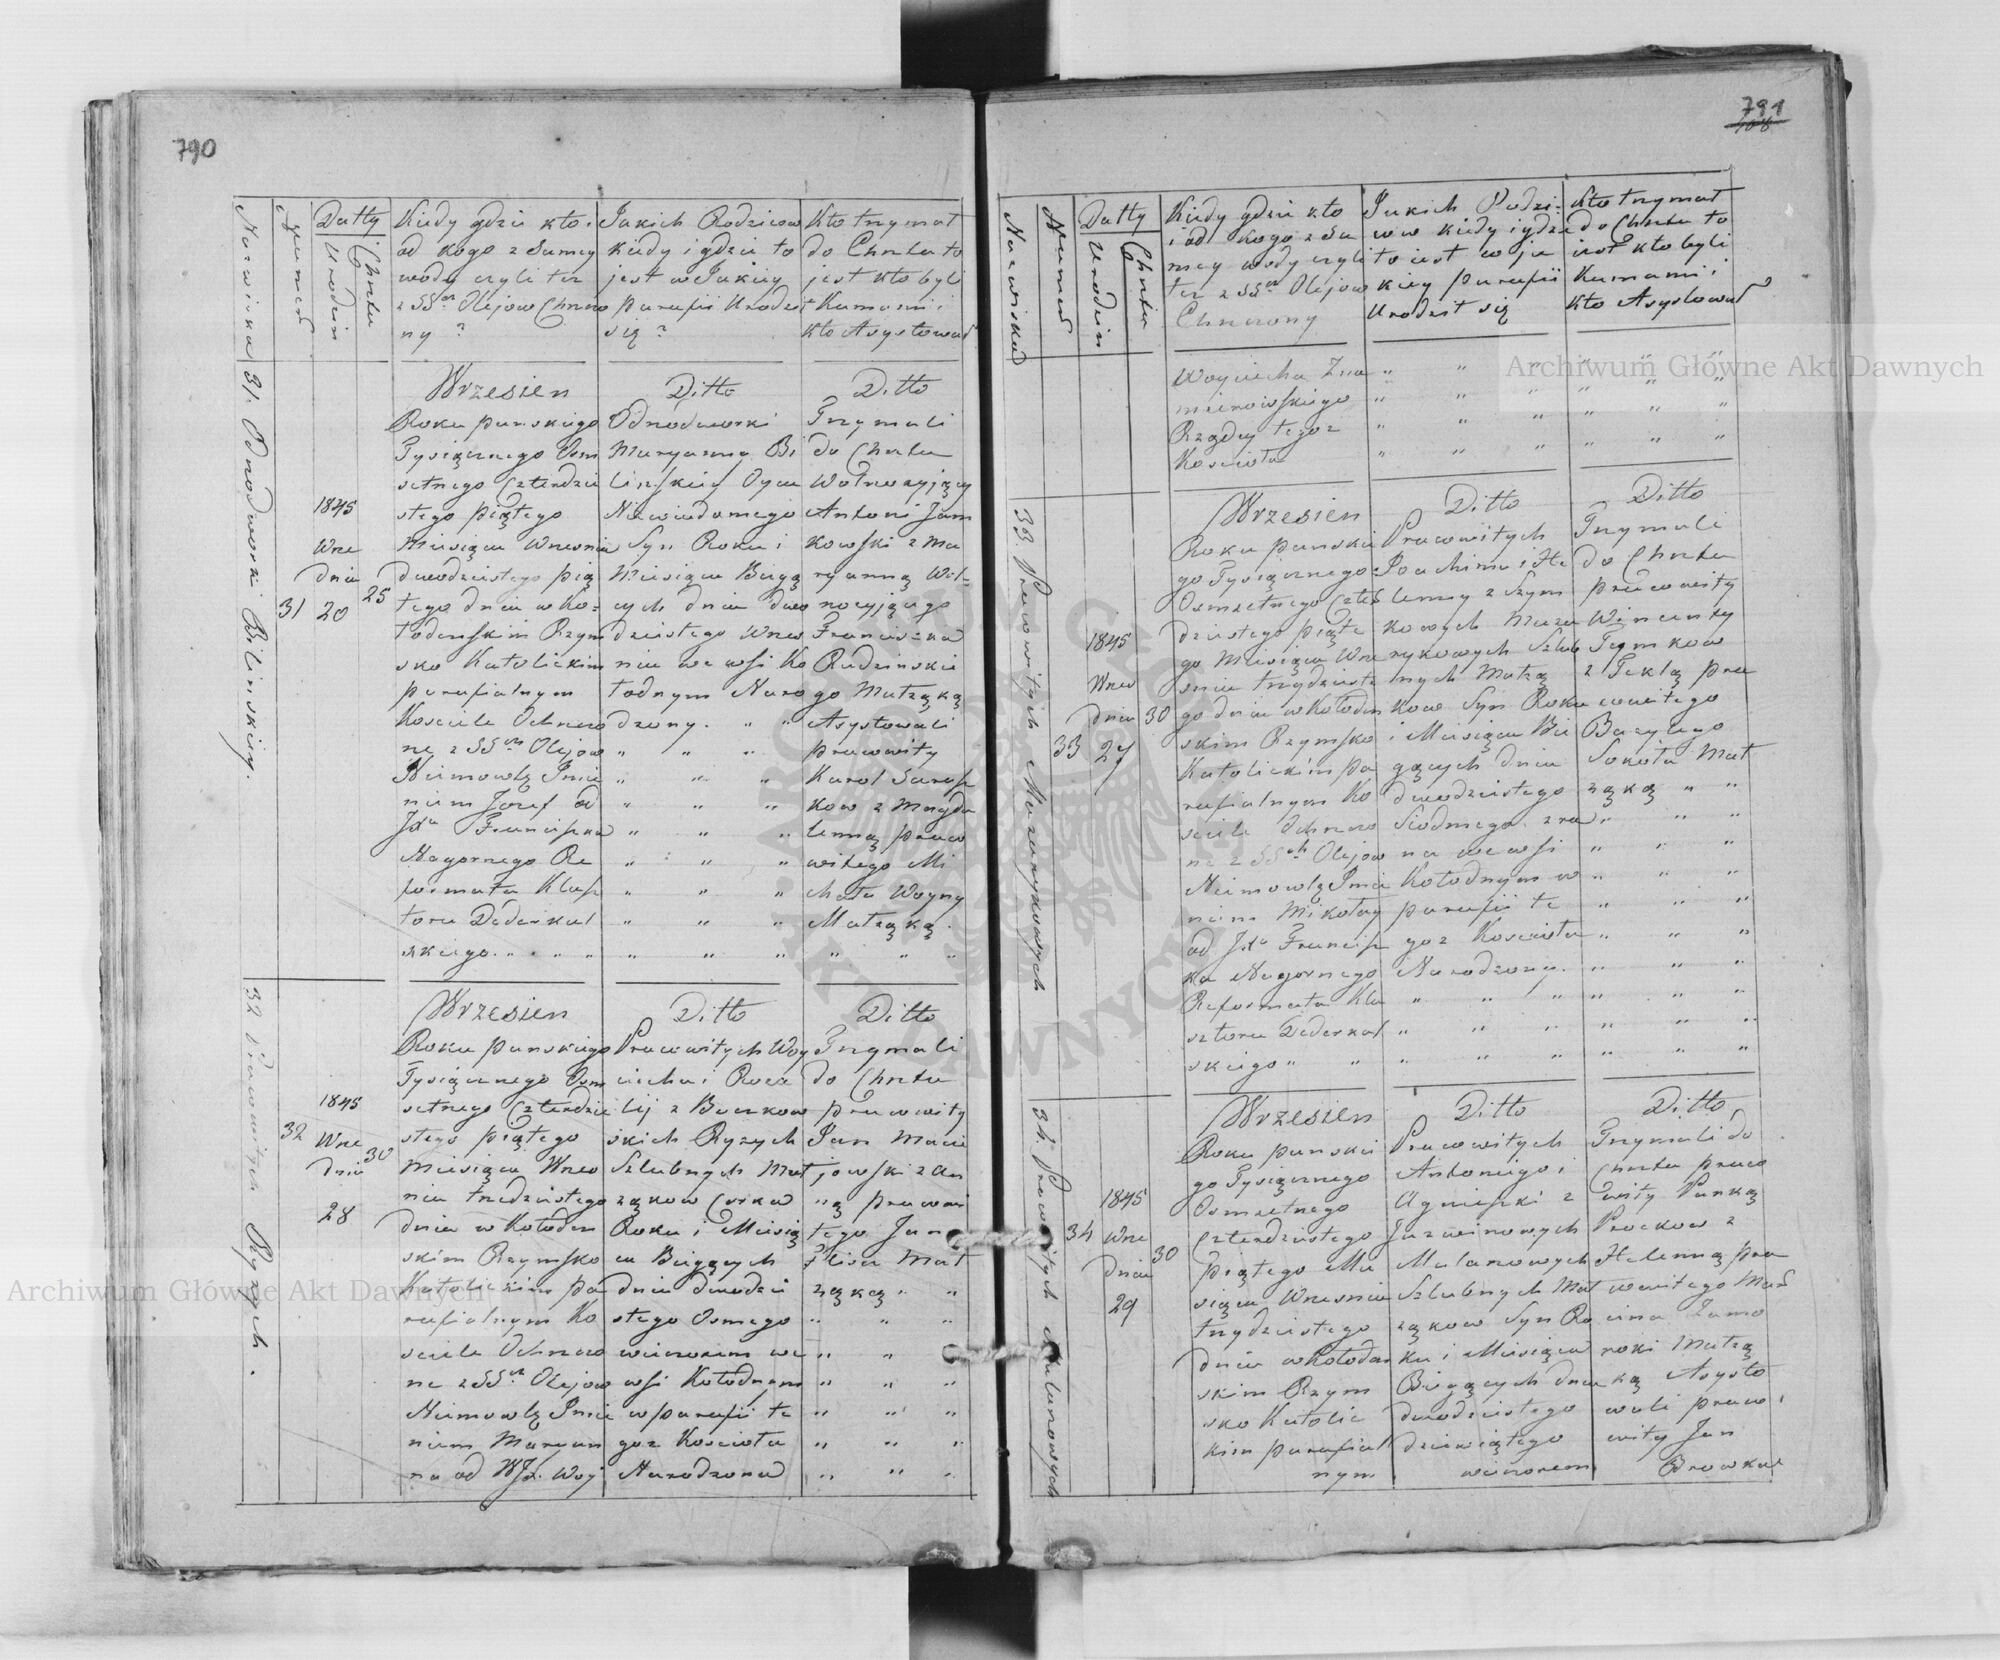 790
Nazwiska
Numer
Datty
Urodzin
Chrztu
Kiedy gdzie kto i
od kogo z Samey
wody czyli też
z SSch Olejow Chrzczo
ny ?
Jakich Rodzicow
kiedy i gdzie to
jest w Jakiey
parafii Urodził
się ?
Kto trzymał
do Chrztu to
jest kto byli
Kumami i
kto Asystował
31. Odnodworki Bilinskiey.
31
1845
Wrze
dnia
20
25
Wrzesien
Roku panskiego
Tysiącznego Osm
setnego Czterdzie
stego piątego
Miesiąca Wrzesnia
dwudziestego pią
tego dnia w Ko-
łodenskim Rzym
sko Katolickim
parafialnym
Kosciele Ochrzczo
ne z SSch Olejow
Niemowlę Imie
niem Jozef od
Jxa Franciszka
Nagornego Re
formata Klasz
toru Dederkal
skiego. " " " "
Ditto
Odnodworki
Maryanny Bi
linskiey Oyca
Niewiadomego
Syn Roku i
Miesiąca Bieżą
cych dnia dwu
dziestego Wrzes
nia we wsi Ko
łodnym Naro
dzony. " "
Ditto
Trzymali
do Chrztu
Wolneryjący
Antoni Jam
kowski z Ma
ryanną Wol-
neryjącego
Franciszka
Rudzinskie
go Małząką
Asystowali
prawowity
Karol Sarap
kow z Magda
lenną prawo
witego Mi
chała Woyny
Małząką.
32 Prawowitych Ryzych.
32
1845
Wrze
dnia
28
30
Wrzesien
Roku panskiego
Tysiącznego Osm
setnego Czterdzie
stego piątego
Miesiąca Wrzes
nia trzedziestego
dnia w Kołoden
skim Rzymsko
Katolickim pa
rafialnym Ko
sciele Ochrzczo
ne z SSch Olejow
Niemowlę Imie
niem Maryan
na od WJx. Woj
Ditto
Prawowitych Woy
ciecha i Roza
lij z Buczkow
skich Ryzych
Szlubnych Mał
ząkow Corka
Roku i Miesią
ca Bieżących
dnia dwudzie
stego Osmego
wieczorem we
wsi Kołodnym
w parafii te
goz Kosciola
Narodzona
Ditto
Trzymali
do Chrztu
prawowity
Jan Macie
jowski z An
ną prawowi
tego Jana
Mał
ząką " "
791
Nazwiska
Numer
Datty
Urodzin
Chrztu
Kiedy gdzie kto
i od kogo z Sa
mey wody czyli
też z SSch Olejow
Chrzczony
Jakich Rodzi-
cow kiedy i gdzie
to jest w ja
kiey parafii
Urodził się
Kto trzymał
do Chrztu to
jest kto byli
Kumami i
kto Asystował
Woyciecha Zna
mierowskiego
Rządcy tegoz
Kosciola
33. Prawowitych Mazurykowych
33
1845
Wrzes
dnia
27
30
Wrzesien
Roku panskie
go Tysiącznego
Osmsetnego Czter
dziestego piąte
go Miesiąca Wrze
snia trzydzieste
go dnia w Kołoden
skim Rzymsko
Katolickim pa
rafialnym Ko
sciele Ochrzczo
ne z SSch Olejow
Niemowlę Imie
niem Mikołay
od Jxa Francisz
ka Nagornego
Reformata Kla
sztoru Dederkal
skiego " "
Ditto
Prawowitych
Joachima i He
lenny z Szym
kowych Mazu
rykowych Szlub
nych Małzą
kow Syn Roku
i Miesiąca Bie
żących dnia
dwudziestego
Siodmego z ra
na we wsi
Kołodnym w
parafii te
goz Kosciola
Narodzony.
Ditto
Trzymali
do Chrztu
prawowity
Wincenty
Tymkow
z Teklą pra
wowitego
Bazylego
Sokoła Mał
ząką " "
34. Prawowitych Malanowych
34
1845
Wrze
dnia
29
30
Wrzesien
Roku panskie
go Tysiącznego
Osmsetnego
Czterdziestego
piątego Mie
siąca Wrzesnia
trzydziestego
dnia w Kołoden
skim Rzym
sko Katolic
kim parafial
nym
Ditto
Prawowitych
Antoniego i
Agnieszki z
Jazwinowych
Malanowych
Szlubnych Mał
ząkow Syn Ro
ku i Miesiąca
Bieżących dnia
dwudziestego
dziewiątego
wieczorem
Ditto
Trzymali do
Chrztu prawo
wity Pańką
Prockow z
Helenną pra
wowitego Mar
cina Zamo
roki Małzą
ką Asysto
wali prawo
wity Jan
Browkal
Archiwum Główne Akt Dawnych
Archiwum Główne Akt Dawnych